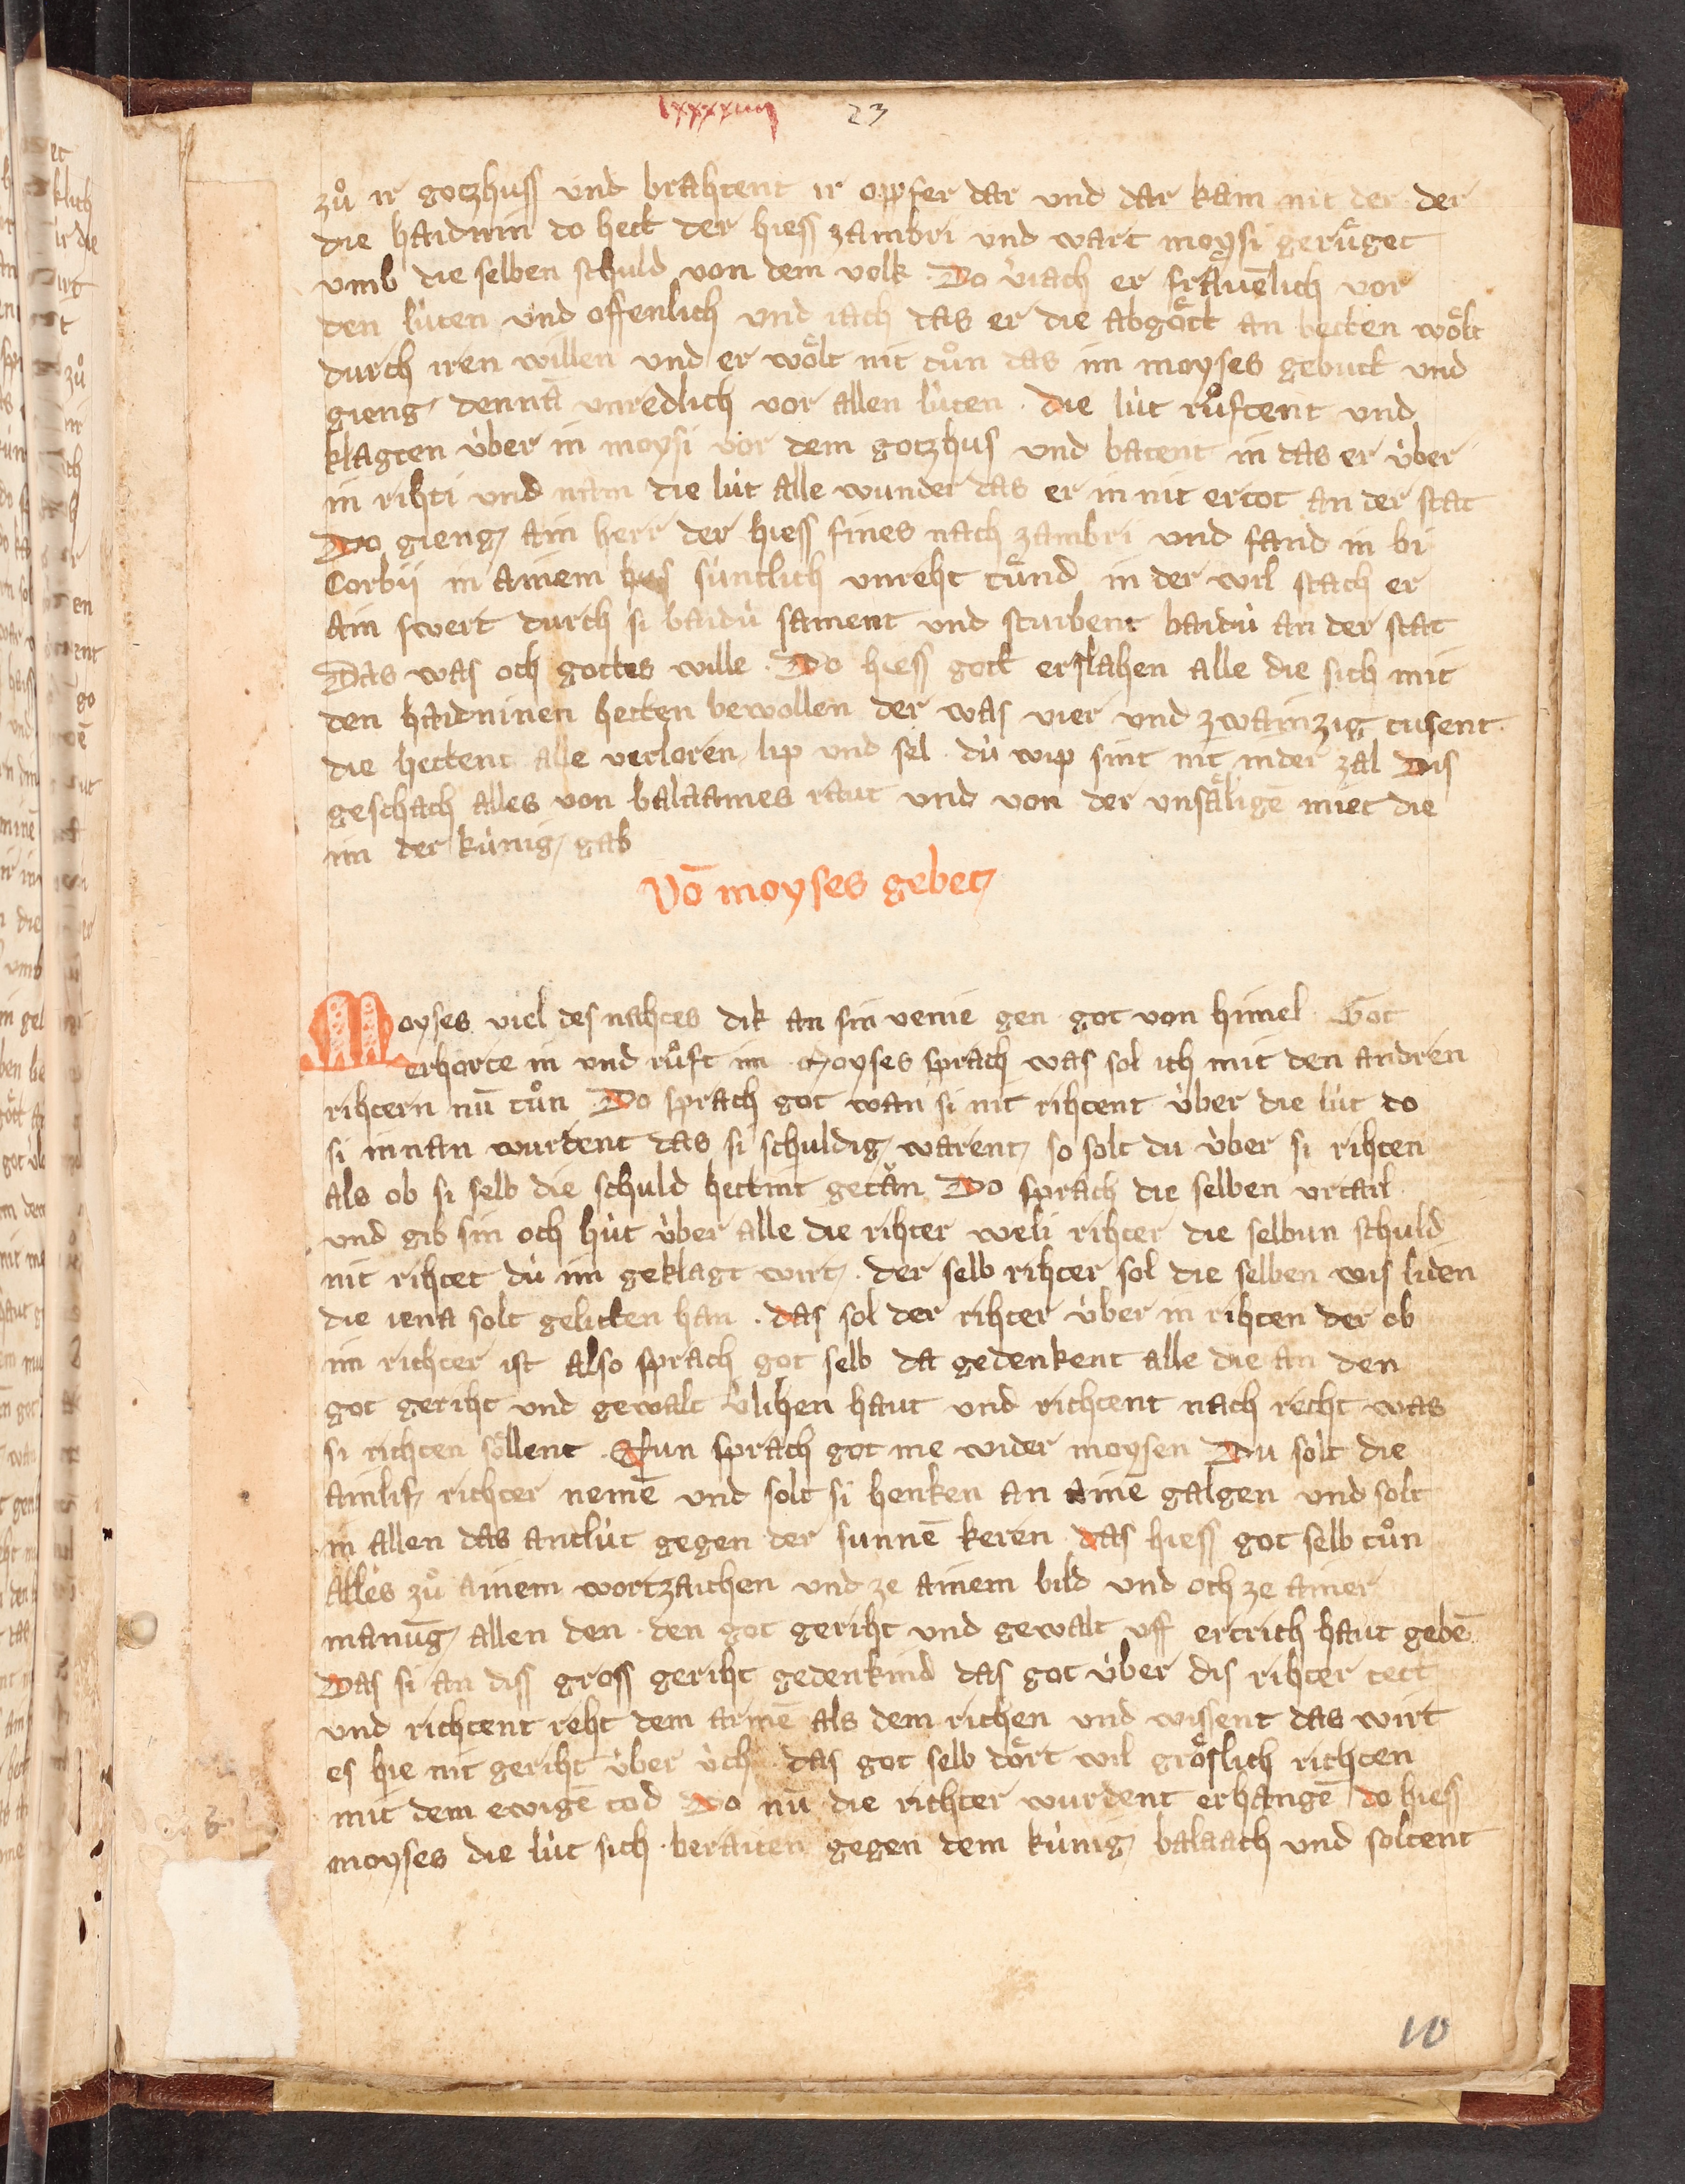 lxxxxiiij 23
zuͦ ir gotzhuss vnd brahtent ir opfer dar vnd dar kam nit der der
die haidnin do hett der hiess zambri vnd wart moysi geruͤget
vmb die selben schuld von dem volk Do v̓iach er fraͤuenlich vor
den lúten vnd offenlich vnd iach das er die abgoͤtt an betten woͤlt
durch iren willen vnd er woͤlt nit tuͦn das im moyses gebutt vnd
gieng dennā vnredlich vor allen lúten . die lút ruͦftent vnd
klagten úber in moysi vor dem gotzhus vnd batent in das er úber
in rihti vnd nam die lút alle wunder das er in nit ertot an der stat
Do gieng ain herr der hiess fines nach zambri vnd fand in bi
Corbij in ainem hus súntlich vnreht tuͤnd in der wil stach er
ain swert durch si baidú sament vnd sturbent baidú an der stat
Das was och gottes wille . Do hiess gott erslahen alle die sich mit
den haidninen hetten bewollen der was vier vnd zwainzig tusent
die hettent alle verloren lip vnd sel . dú wip sint nit in der zal Dis
geschach alles von balaames raut vnd von der vnsaͤligē miet die
im der kúnig gab
Vō moyses gebet
Moyses viel des nahtes dik an sin venie gen got von himel Got
erhorte in vnd ruͦft im Moyses sprach was sol ich mit den andren
rihtern nū tuͦn Do sprach got wan si nit rihtent úber die lút do
si innan wurdent das si schuldig warent so solt du úber si rihten
als ob si selb die schuld hettint getān Do sprach die selben vrtail
vnd gib sin och hút úber alle die rihter weli rihter die selbun schuld
nit rihtet dú im geklagt wirt . der selb rihter sol die selben wis liden
die iena solt gelitten han . das sol der rihter úber in rihten der ob
im richter ist also sprach got selb da gedenkent alle die an den
got geriht vnd gewalt v̓lihen haut vnd richtent nach recht was
si richten soͤllent . Nun sprach got me wider moysen Du solt die
ainlif richter nemē vnd solt si henken an ainē galgen vnd solt
in allen das antlút gegen der sunnē keren das hiess got selb tuͦn
alles zuͦ ainem wortzaichen vnd ze ainem bild vnd och ze ainer
manūg allen den den got geriht vnd gewalt vff ertrich haut gebē
Das si an diss gross geriht gedenkind das got úber dis rihter tett
vnd richtent reht dem armē als dem richen vnd wissent das wirt
es hie nit geriht úber úch das got selb doͤrt wil groͤslich richten
mit dem ewigē tod Do nū die richter wurdent erhangē do hiess
moyses die lút sich beraiten gegen dem kúnig balaach vnd soltent
10